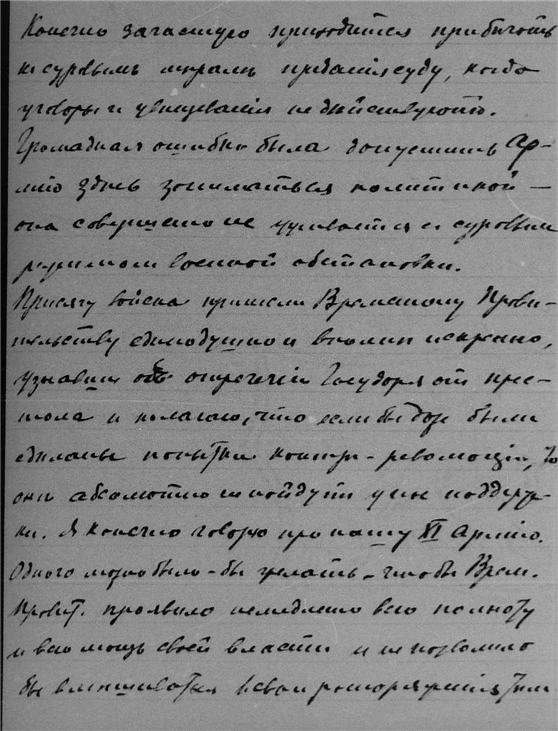 Конечно зачастую приходится прибѣгать
къ суровымъ мѣрамъ преданія суду, когда
уговоры и увѣщеванія не дѣйствуютъ.
Громадная ошибка была допустить Ар-
мію здѣсь заниматься политикой —
она совершенно не уживается съ суровымъ
режимомъ военной обстановки.
Присягу войска принесли Временному Прави-
тельству единодушно и вполнѣ искренно,
узнавши объ отреченіи Государя отъ прес-
тола и полагаю, что если бы даже были
сдѣланы попытки контръ-революціи, то
они абсолютно не найдутъ у нихъ поддерж-
ки. Я конечно говорю про нашу XI Армію.
Одного можно было-бы желать - чтобы Врем.
Правит. проявило немедленно всю полноту
и всю мощь своей власти и не позволило
бы вмѣшиваться въ свои распоряженія тѣмъ